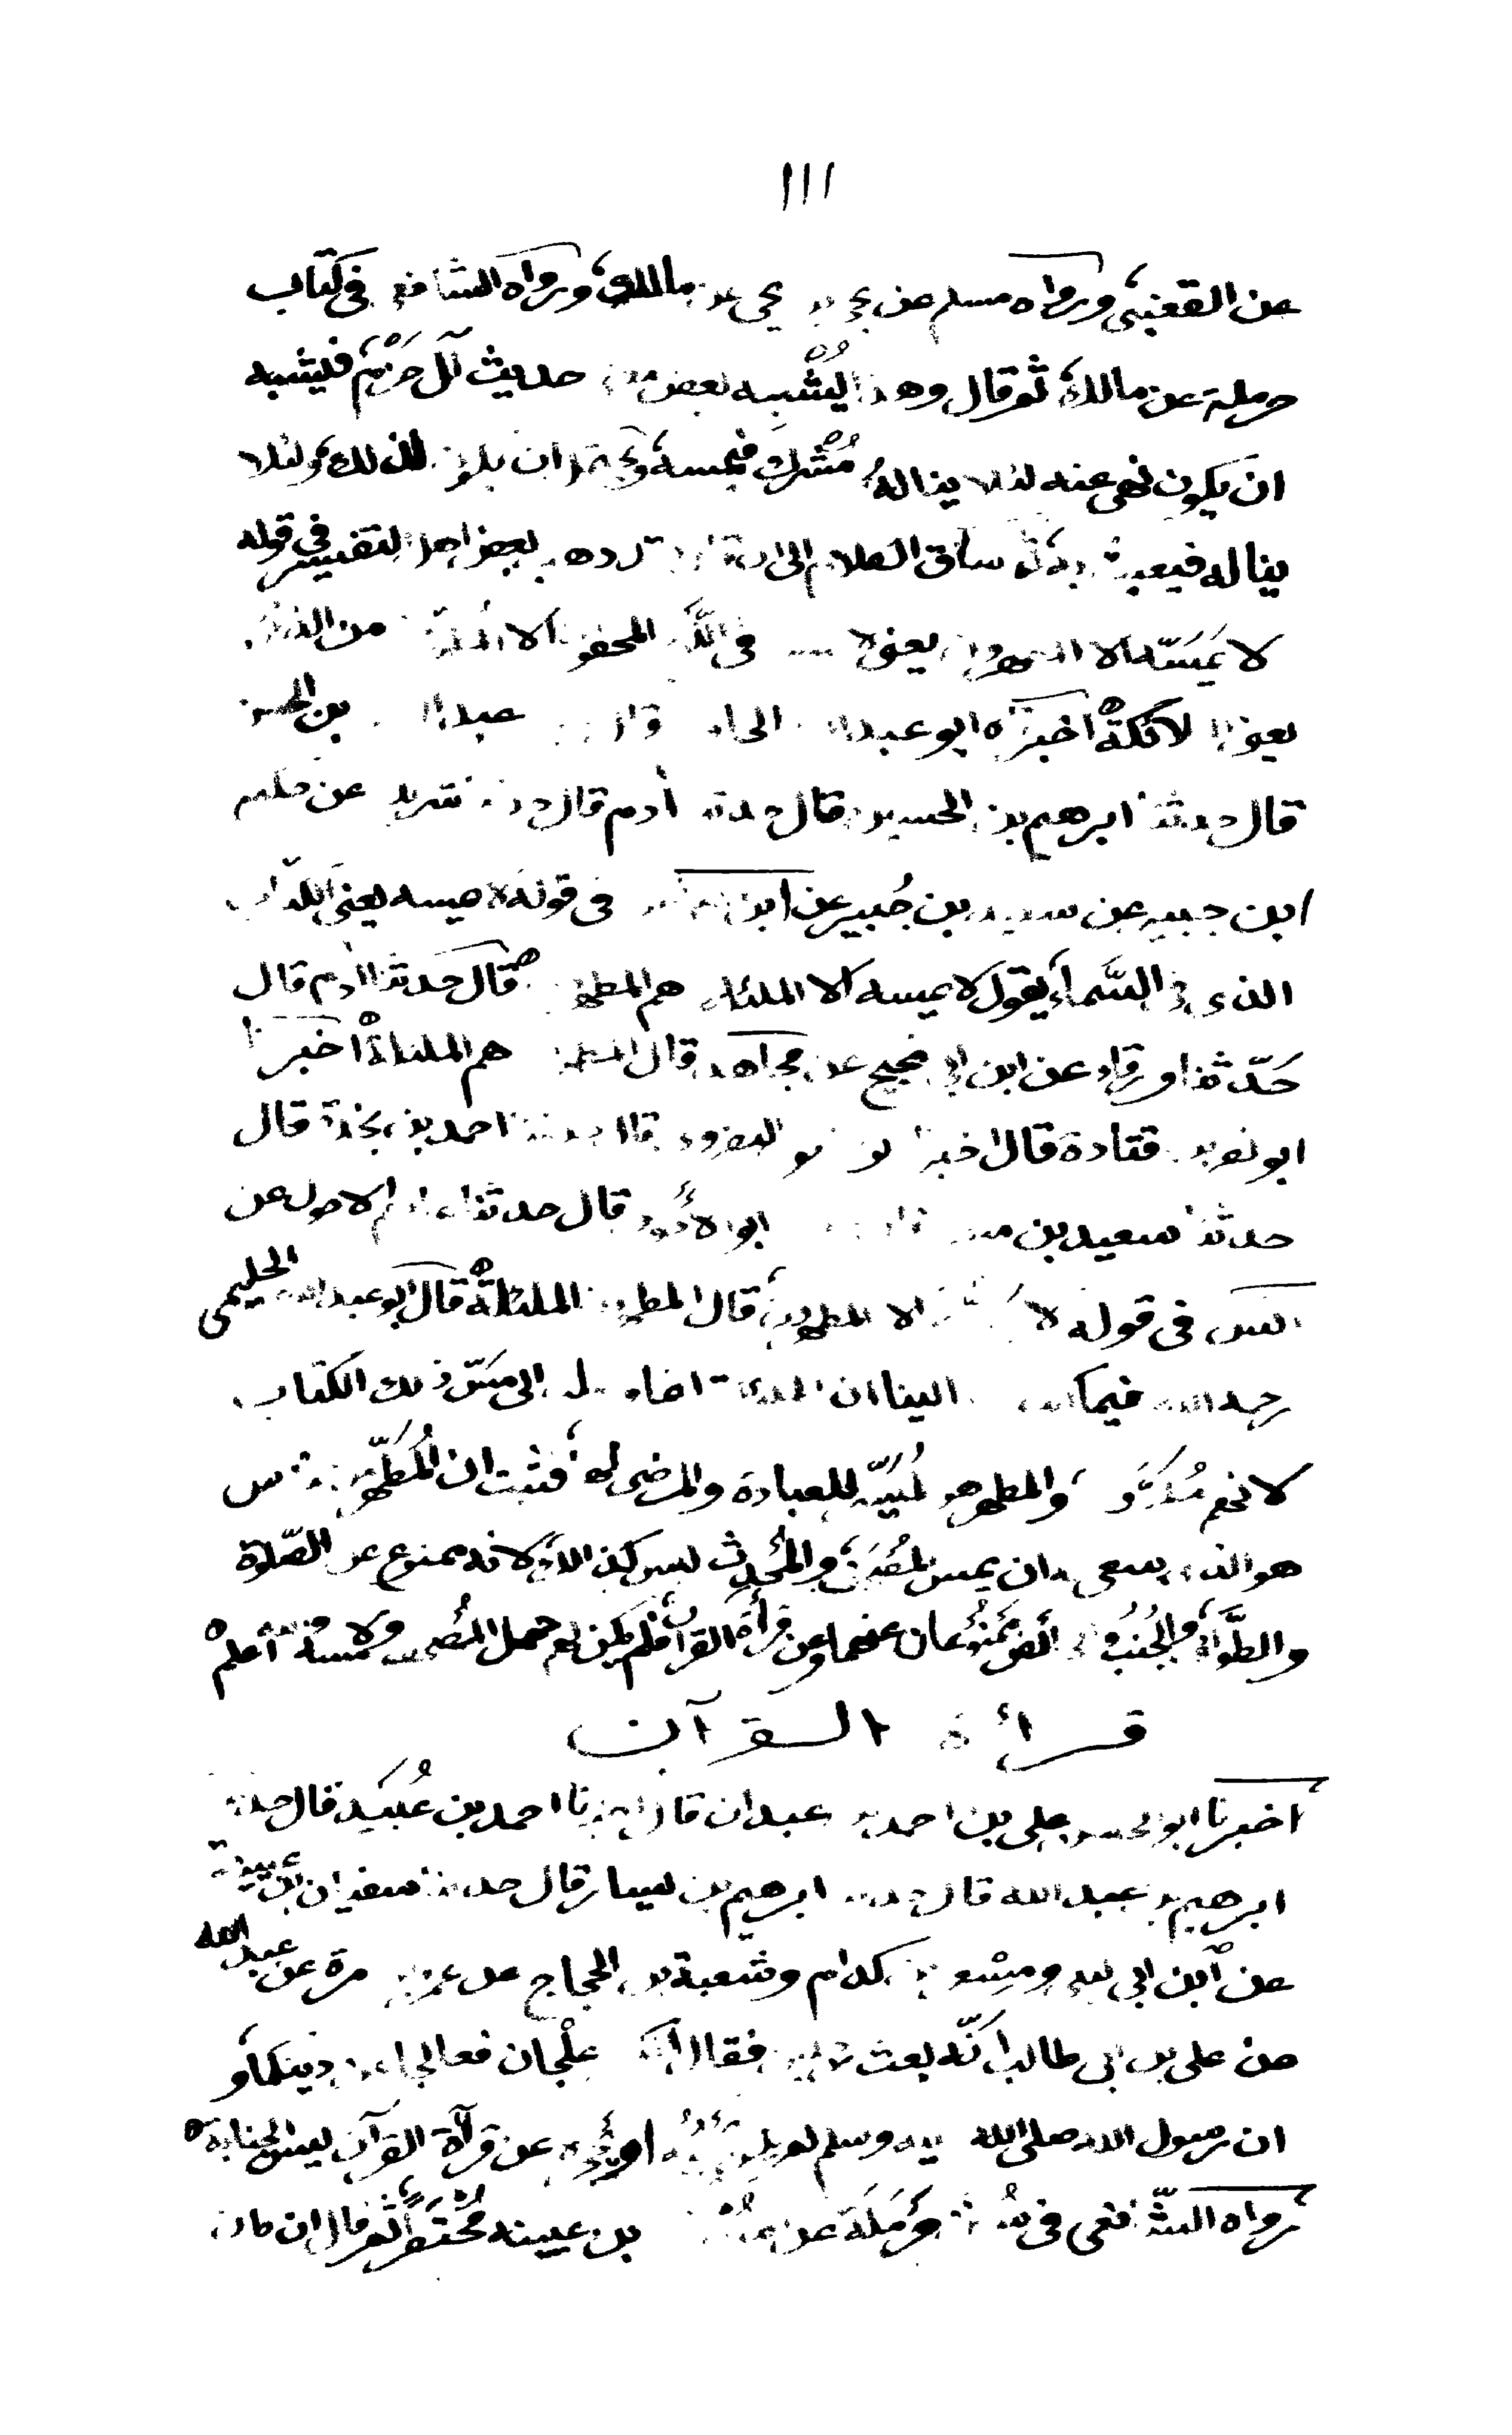 ١١١
عن القعنبي ورواه مسلم عن يحيى بن يحيى عن مالك، ورواه الشافعي في كتاب
حرملة عن مالك ثم قال وهذا يُشْبِه بعض معنى حديث آل حَزْمٍ فيشبه
ان يكون نهى عنه لئلا يناله مُشْرك فيمسه ويحتمل ان يكون لذلك ولئلا
يناله فيعبث به ثم ساق الكلام الى بعض اهل التفسير في قوله
لا يَمَسّه الا المطهرون يعني لا في المحفوظ الا من الذنوب
يعني الملائكة اخبرناه ابو عبدالله الحافظ قال عبدالرحمن بن الحسن
قال حدثنا ابرهيم بن الحسين قال حدثنا آدم قال حدثنا شريك عن حكيم
ابن جبير عن سعيد بن جُبير عن ابن عباس في قوله لا يمسه يعني الكتاب
الذي في السَّماء يقول لا يمسه الا الملئكة هم المطهرون قال حدثنا آدم قال
حَدّثنا ورقاء عن ابن ابي نجيح عن مجاهد قال المطهرون هم الملئكة اخبرنا
ابو نصر بن قتادة قال اخبرنا ابو منصور النضروي قال حدثنا احمد بن نجدة قال
حدثنا سعيد بن منصور قال حدثنا ابو الاحوص قال حدثنا عاصم الاحول عن
انس في قوله لا يمسه الا المطهرون قال المطهرون الملئكة قال ابو عبدالله الحليمي
رحمه الله فيما الينا ان الملائكة الى مسّ ذلك الكتاب
لانهم مُطهَّرون والمطهر هو المُيَسَّر للعبادة والمرضي لها فثبت ان المُطَهَّر من الناس
هو الذي ينبغي له ان يمس المُصْحَف والمُحْدِث ليس كذلك لانه ممنوع عن الصّلوة
والطَّواف والجُنُب والحائض مَمْنُوعان عنهما وعن قرأة القرآن فلم يكن لهم حمل المُصحف ولا مسه والله اعلم
قرأة القرآن
اخبرنا ابو الحسن علي بن احمد بن عبدان قال اخبرنا احمد بن عُبَيْد قال حدثنا
ابرهيم بن عبد الله قال حدثنا ابرهيم بن بشار قال حدثنا سفيان بن عيينة
عن ابن ابي ليلى ومِسْعر بن كدام وشعبة بن الحجاج عن عمرو بن مرة عن عبد الله
عن علي بن ابي طالب انّه بعث رجلين فقال انكما عِلْجان فعالجا عن دينكما و
ان رسول الله صلى الله عليه وسلم لم يكن يَحْجُبُه او يَحْجُزه عن قرأة القرآن ليس الجنابة
رواه الشّافعي في سُنن حَرْمَلَة عن سُفيان بن عيينه مُخْتَصَراً ثم قال ان كان